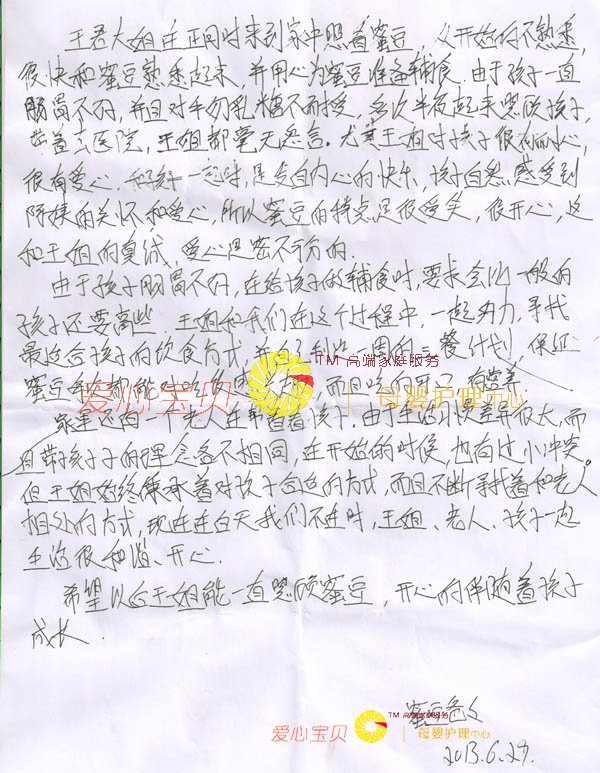 王君大姐自正同时来到家中照看蜜豆，从开始的不熟悉，
很快和蜜豆熟悉起来，并用心为蜜豆准备辅食。由于孩子一直
肠胃不好，并且对牛奶乳糖不耐授，多次半夜起来照顾孩子，
带着去医院，王姐都毫无怨言。尤其王姐对孩子很有耐心，
很有爱心，和孩子一起时，是发自内心的快乐，孩子自然感受到
阿姨的关怀和爱心，所以蜜豆的特点是很爱笑，很开心，这
和王姐的真诚、爱心是密不可分的。
由于孩子肠胃不好，在给孩子做辅食时，要求会比一般的
孩子还要高些。王姐和我们在这个过程中，一起努力，寻找
最适合孩子的饮食方式，并且制定一周的三餐计划，保证
蜜豆每天都能
TM 高端家庭服务
爱心宝贝 | 母婴护理中心
家里还有一个老人在帮着看孩子，由于生活习惯差异很大，而
且带孩子子的理念各不相同，在开始的时候，也有过小冲突。
但王姐始终秉承着对孩子合适的方式，而且不断寻找着和老人
相处的方式，现在在白天我们不在时，王姐、老人、孩子一起
生活很和谐、开心。
希望以后王姐能一直照顾蜜豆，开心的伴随着孩子
成长。
蜜豆爸爸
TM 高端家庭服务
爱心宝贝 | 母婴护理中心
2013.6.29.